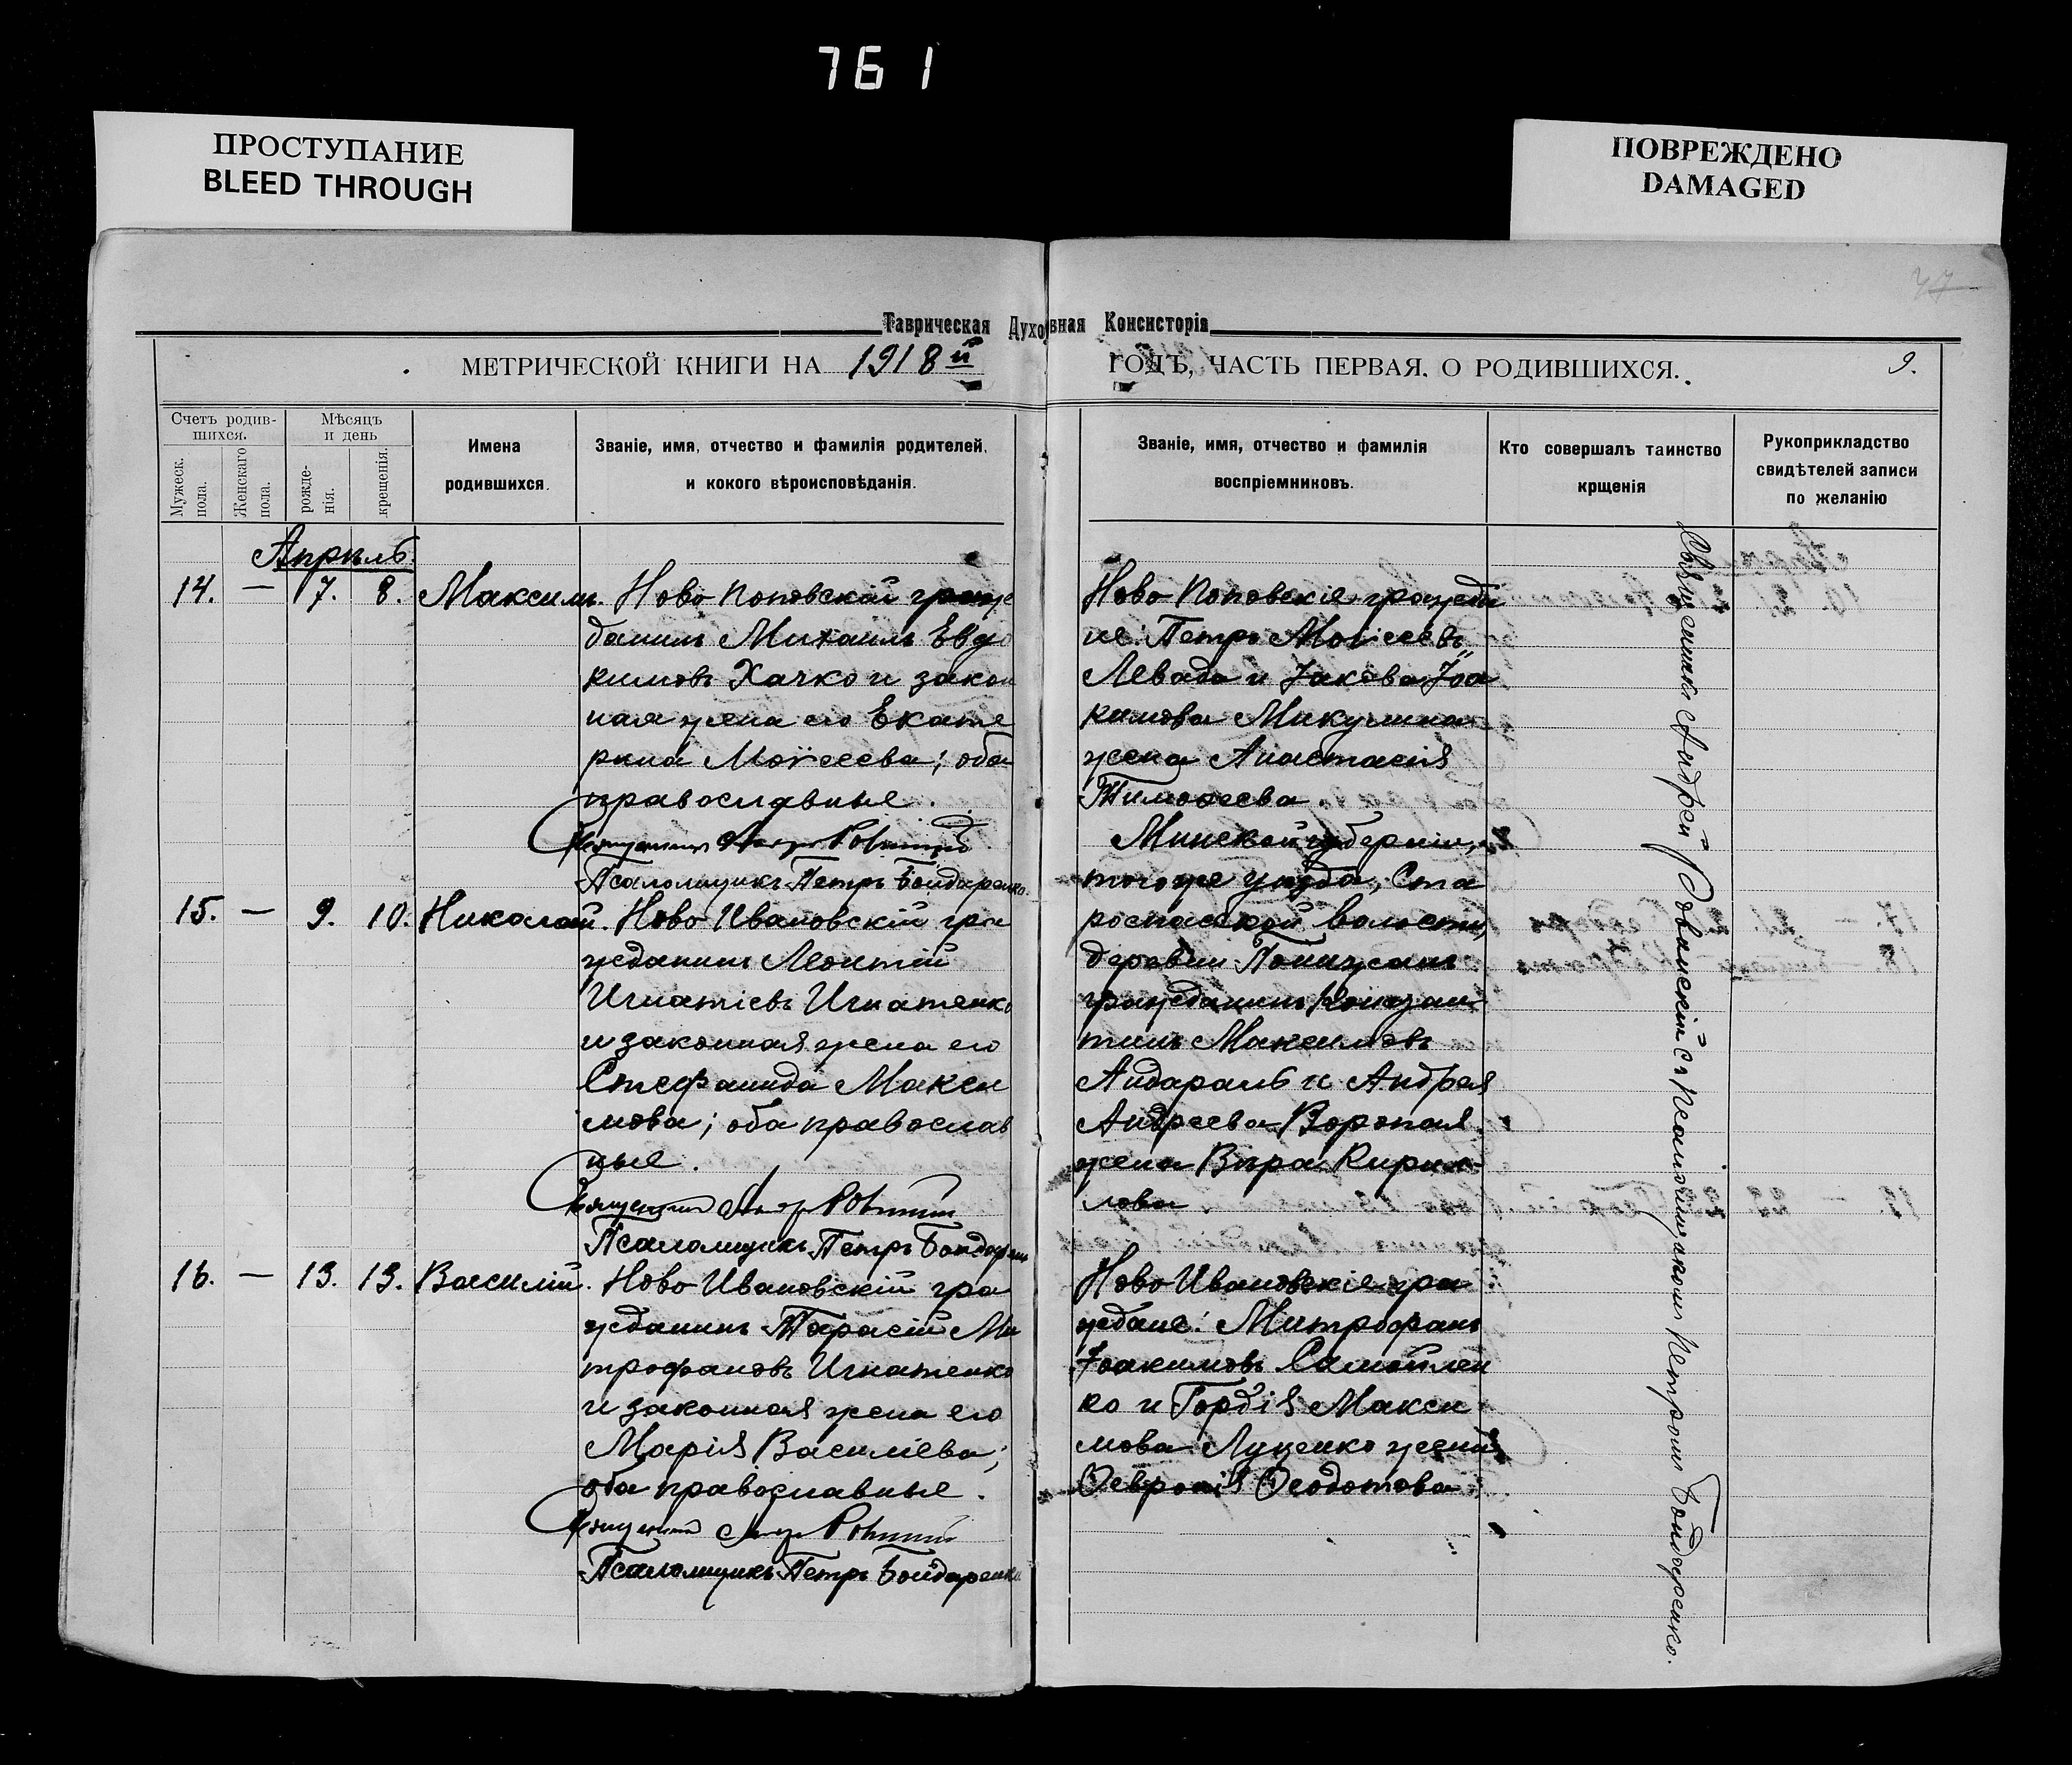 761
ПРОСТУПАНИЕ
BLEED THROUGH
ПОВРЕЖДЕНО
DAMAGED
Таврическая Духовная Консисторія
МЕТРИЧЕСКОЙ КНИГИ НА 1918й ГОДЪ, ЧАСТЬ ПЕРВАЯ. О РОДИВШИХСЯ.
9.
Счетъ родив-
шихся.
Мужеск.
пола.
Женскаго
пола.
Мѣсяцъ
и день
рожде-
нія.
крещенія.
Имена
родившихся.
Званіе, имя, отчество и фамилія родителей,
и кокого вѣроисповѣданія.
Званіе, имя, отчество и фамилія
воспріемниковъ.
Кто совершалъ таинство
крщенія
Рукоприкладство
свидѣтелей записи
по желанію
Апрѣль.
14. — 7. 8. Максимъ. Ново Поповскій граж
данинъ Михаилъ Евдо
кимовъ Хачко и закон
ная жена его Екате
рина Моѵсеева; оба
православные.
Священникъ
Псаломщикъ Петръ Бондаренко
Ново Поповскіе граждa
не: Петръ Моѵсеевъ
Левада и Іакова Іоа
кимова Микулина
жена Анастасія
Тимоѳеева.
15. — 9. 10. Николай. Ново Ивановскій гра
жданинъ Леонтій
Игнатіевъ Игнатенко
и законная жена его
Стефанида Макси
мова; оба православ
ные.
Священникъ
Псаломщикъ Петръ Бондаренко
Минской губерніи,
того же уѣзда, Ста
росельской волости,
деревни
гражданинъ Констан
тинъ Максимовъ
и Андрея
Андреева Воропая
жена Вѣра Кирил-
лова
16. — 13. 13. Василій. Ново Ивановскій гра
жданинъ Тарасій Ми
трофановъ Игнатенко
и законная жена его
Марія Василіева;
оба православные.
Священникъ
Псаломщикъ Петръ Бондаренко
Ново Ивановскіе гра
ждане: Митрофанъ
Іоакимовъ Самойлен
ко и Гордія Макси
мова Луценко жена
Ѳевронія Ѳеодотова
Священникъ Андрей Ровинскій съ псаломщикомъ Петромъ Бондаренко.